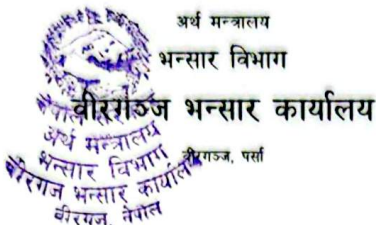 अर्थ मन्त्रालय
भन्सार विभाग
वीरगञ्ज भन्सार कार्यालय
वीरगञ्ज, पर्सा
नेपाल
अर्थ मन्त्रालय
भन्सार विभाग
वीरगंज भन्सार कार्यालय
वीरगंज, नेपाल